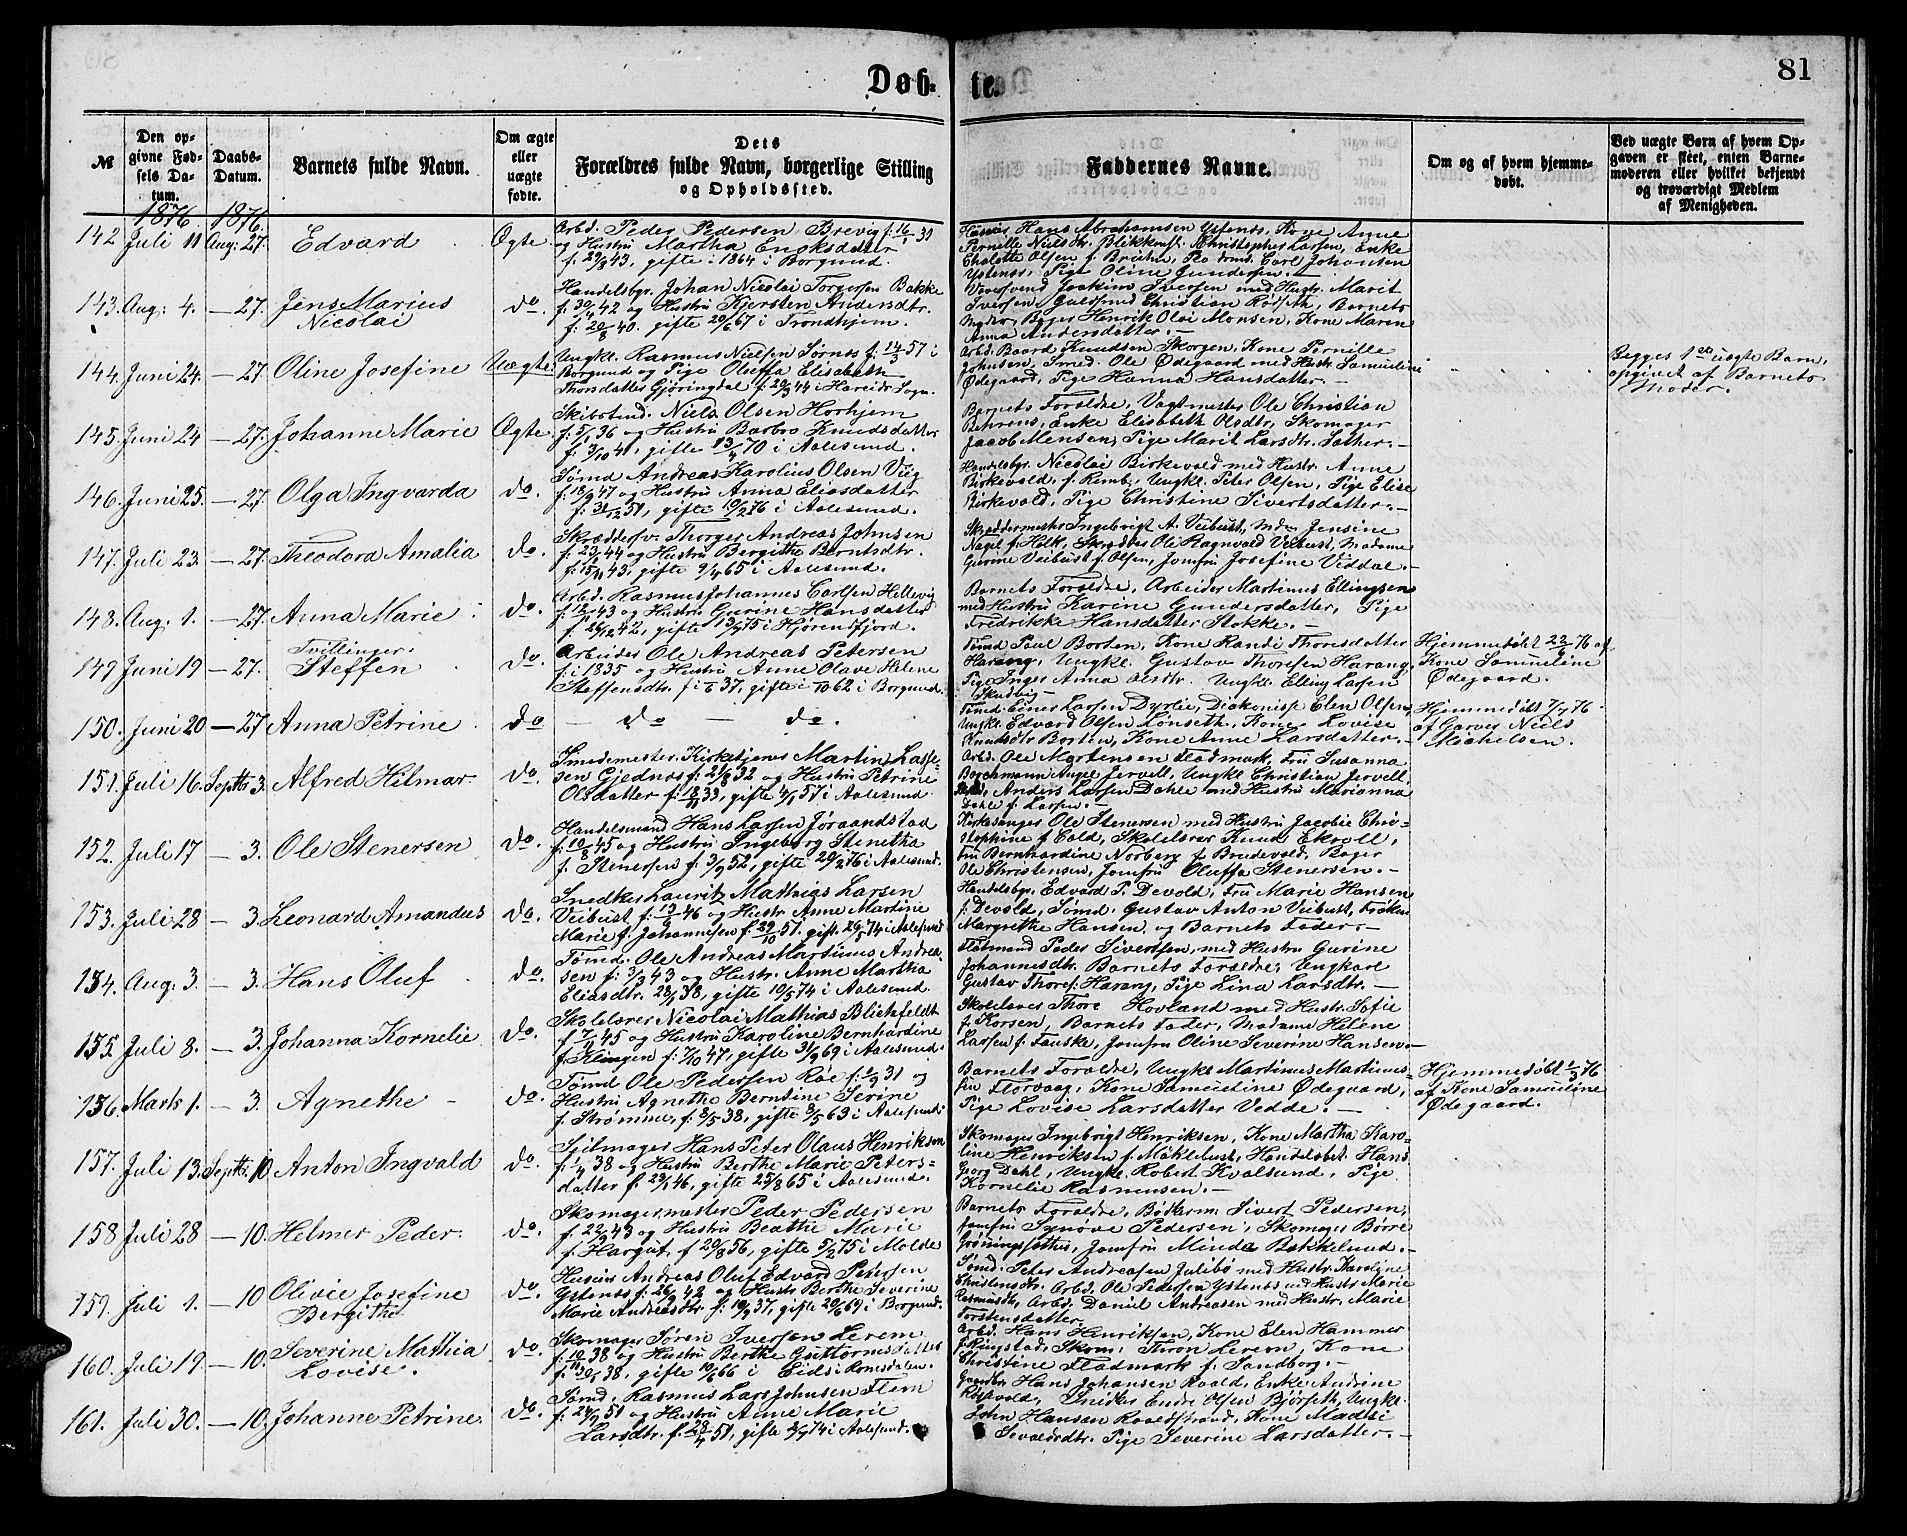 Døb-
te.
81
№
Den op-
givne Fød-
sels Da-
tum.
Daabs-
Datum.
Barnets fulde Navn.
Om ægte
eller
uægte
fødte.
Dets
Forældres fulde Navn, borgerlige Stilling
og Opholdssted.
Faddernes Navne.
Om og af hvem hjemme-
døbt.
Ved uægte Børn af hvem Op-
gaven er skeet, enten Barne-
moderen eller hvilket bekjendt
og troværdigt Medlem
af Menigheden.
1876. 1876.
142 Juli 11 Aug: 27. Edvard Ægte.
Arbd. Peder Pedersen Brevig f. 16/1 39
og Hustru Martha Enoksdatter
f. 29/3 43, gifte i 1864 i Borgund.
Husms. Hans Abrahamsen Ystenes, Kone Anne
Pernille Nielsdtr. Blikkensl. Christopher Larsen, Enke
Chalotte Olsen f. Brühn, Carl Johansen
Ystenes, Pige Oline Gundersen.
143. Aug: 4. — 27. Jens Marius
Nicolai do.
Handelsbgr. Johan Nicolai Torgersen Bakke
f. 30/4 42 og Hustru Kjersten Andersdtr.
f. 20/8 40. gifte 20/6 67 i Trondhjem.
Joakim Iversen med Hustr. Marit
Iversen, Guldsmed Christian Rødseth, Barnets
Moder, Bager Henrik Olai Monsen, Kone Maren
Anna Andersdatter.—
144. Juni 24. — 27. Oline Josefine Uægte.
Ungkl. Rasmus Nielsen Sørnes f. 14/3 57 i
Borgund og Pige Oluffa Elisabeth
Thorsdatter Gjøringdal f. 29/3 44 i Hareids Sogn.
Arbd. Baard Knudsen Skorgen, Kone Pernille
Johnsen, Smed Ole Ødegaard med Hustr. Samueline
Ødegaard, Pige Hanna Hansdatter.—
Begges 1ste uægte Barn,
opgivet af Barnets
Moder.
145. Juni 24 — 27. Johanne Marie Ægte.
Skibstmd. Niels Olsen Horhjem
f. 5/1 36 og Hustru Barbro Knudsdatter
f. 3/10 41, gifte 13/4 70 i Aalesund.
Barnets Forældre, Vagtmester Ole Christian
Behrens, Enke Elisabeth Olsdtr, Skomager
Jacob Monsen, Pige Marit Larsdtr. Sather.—
146. Juni 25. — 27. Olga Ingvarda do.
Sømd Andreas Karolius Olsen Viig
f. 18/9 47 og Hustru Anna Eliasdatter
f. 31/12 51, gifte 10/2 76 i Aalesund.
Handelsbgr. Nicolai Birkevold med Hustr. Anne
Birkevold, f. Remb., Ungkl. Peter Olsen, Pige Elise
Birkevold, Pige Christine Sivertsdatter.—
147. Juli 23. — 27. Theodora Amalia do.
Skrædderfv. Thorger Andreas Johnsen
f. 23/7 44 og Hustru Bergithe Berntsdtr.
f. 15/11 43, gifte 9/4 65 i Aalesund.
Skræddermester Ingebrigt A. Veibust, Mdm Jensine
Nagel f. Holk, Skrædder Ole Ragnvald Veibust, Madame
Gurine Veibust f. Olsen, Jomfru Josefine Viddal.—
148. Aug: 1. — 27. Anna Marie do.
Arbd. Rasmus Johannes Carlsen Hellevig
f. 12/6 43 og Hustru Gurine Hansdatter
f. 26/12 42, gifte 13/7 75 i Hjørendfjord.
Barnets Forældre, Arbeider Martinus Ellingsen
med Hustru Karine Gundersdatter, Pige
Fredrikke Hansdatter Stokke.—
149 Juni 19 — 27. Tvillinger:
Steffen do.
Arbeider Ole Andreas Petersen
f. i 1835 og Hustru Anne Olave Helene
Steffensdtr. f. 37, gifte 62 i Borgund.
Tømd Paul Borten, Kone Randi Thoresdatter
Harang, Ungkl. Gustav Thoresen Harang,
Pige Inger Anna Olsdtr. Ungkl. Elling Larsen
Skudvig.—
Hjemmedøbt 22/6 76 af
Kone Samueline
Ødegaard.
150. Juni 20 — 27 Anna Petrine do — do — do.
Tømd. Einer Larsen Dyrlie, Diakonisse Elen Olsen,
Ungkl. Edvard Olsen Lønseth, Kone Lovise
Knudsdtr Borten, Kone Anne Larsdatter.—
Hjemmedøbt 7/7 76
af Garver Niels
Michelsen.
151. Juli 16. Septbr 3. Alfred Hilmar do.
Smedemester, Kirketjener Martin Lasse-
sen Gjednes f: 21/8 32 og Hustru Petrine
Olsdatter f: 18/11 33, gifte 4/1 57 i Aalesund.
Arbd. Ole Mortensen Fladmark, Fru Susanna
Borchmann Angel Jervell, Ungkl Christian Jervell
Anders Larsen Dahle med Hustru Marianna
Dahle f. Larsen.—
152. Juli 17 — 3. Ole Stenersen do.
Handelsmand Hans Larsen Jøraandstad
f. 10/8 45 og Hustru Ingeborg Stenetha
f. Stenersen f. 3/9 52, gifte 20/2 76 i Aalesund.
Kirkesanger Ole Stenersen med Hustru Jacobie Chri-
stophine f. Cold, Skolelærer Knud Ekroll,
Fru Bernhardine Norberg f. Brudevold, Bager
Ole Christensen, Jomfru Oluffa Stenersen.—
153. Juli 28 — 3. Leonard Amandus do.
Snedker Lauritz Mathias Larsen
Veibust f. 19/6 46 og Hustr Anne Martine
Marie f. Johannesen f. 29/10 51. gift. 26/5 74 i Aalesund
Handelsbgr. Edvard P. Devold, Fru Marie Hansen
f. Devold, Sømd. Gustav Anton Veibust, Frøken
Margrethe Hansen og Barnets Fader.—
154. Aug: 3. — 3. Hans Oluf do.
Tømd. Ole Andreas Martinus Andrea-
sen f. 3/3 43 og Hustr. Anne Martha
Eliasdtr. 28/1 38, gifte 10/5 74 i Aalesund.
Flotmand Peder Sivertsen, med Hustru Gurine
Johannesdtr. Barnets Forældre, Ungkarl
Gustav Thores: Harang, Pige Lina Larsdtr.—
155. Juli 8. — 3. Johanna Kornelie do.
Skolelærer Nicolai Mathias Blichfeldt
f. 7/11 45 og Hustru Karoline Bernhardine
f. Klingen f. 7/10 47, gifte 31/9 69 i Aalesund.
Skolelærer Thore Hovland med Hustr. Sofie
f. Korsen, Barnets Fader, Madame Helene
Larsen f. Fauske, Jomfru Oline Severine Hansen.—
156. Marts 1. — 3. Agnethe do.
Tømd Ole Pedersen Røe f. 1/9 31 og
Hustru Agnethe Berntine Serine
f. Strømme, f. 8/5 38, gifte 3/5 63 i Aalesund.
Barnets Forældre, Ungkl Martinus Martinus-
sen Florvaag, Kone Samueline Ødegaard,
Pige Lovise Larsdatter Vedde.—
Hjemmedøbt 1/3 76
af Kone Samueline
Ødegaard.
157. Juli 13. Septbr. 10. Anton Ingvald do.
Seilmager Hans Peter Olaus Henriksen
f. 1/7 38 og Hustru Berthe Marie Peters-
datter f: 23/1 46, gifte 25/8 65 i Aalesund.
Skomager Ingebrigt Henriksen, Kone Martha Karo-
line Henriksen f. Møklebust, Handelsbet. Hans
Georg Dahl, Ungkl. Robert Kvalsund, Pige
Kornelie Rasmussen.—
158 Juli 28 — 10. Helmer Peder. do.
Skomagermester Peder Pedersen
f. 22/9 43 og Hustru Beathe Marie
f. Hargut, f. 20/8 56, gifte 5/2 75 i Molde
Barnets Forældre, Bødkerm. Sivert Pedersen,
Jomfru Synøve Pedersen, Skomager Børre
Grøningssæther, Jomfru Minda Bakkelund.—
159. Juli 1. — 10 Olivie Josefine
Bergithe do.
Husms Andreas Oluf Edvard Petersen
Ystenes f: 26/9 42 og Hustr Berthe Severine
Marie Andreasdtr. f: 10/9 37, gifte 20/6 69 i Borgund.
Sømd. Peter Andreasen Julibø med Hustr. Karoline
Christensdtr. Arbd. Ole Pedersen Ystenes med Hustr Marie
Rasmusdtr, Arbd. Daniel Andreasen med Hustr. Marie
Torstensdatter.
160. Juli 19. — 10. Severine Mathia
Lovise. do.
Skomager Søren Iversen Lerem
f. 10/11 38 og Hustru Berthe Guttormsdatter
f. 30/5 38, gifte 10/6 66 i Eids i Romsdalen.
Arbd. Hans Henriksen, Kone Elen Hammer
f. Ringstad, Skom. Thron Lerem, Kone
Christine Fladmark f. Sandborg.—
161. Juli 30. — 10. Johanne Petrine do.
Sømd. Rasmus Lars Johnsen Flem
f. 24/9 51 og Hustru Anne Marie
Larsdtr. f. 28/4 51, gifte 3/4 74 i Aalesund.
Gaardbr Hans Johansen Roald, Enke Andrine
Røsvold, Snedker Endre Olsen Bjørseth, Ungkl.
John Hansen Roaldstrand, Kone Madsi
Sevaldsdtr. Pige Severine Larsdatter.—